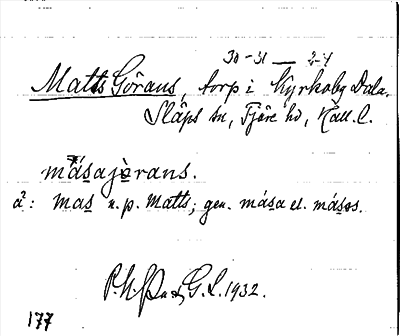 30-31 — 3-4
Matts Görans, torp i Kyrkoby Dala.
Släps sn, Fjäre hd, Hall. l.
måsajòrans.
å²: mas n.p. Matts; gen. måsa el. másos.
G.L. 1932.
177